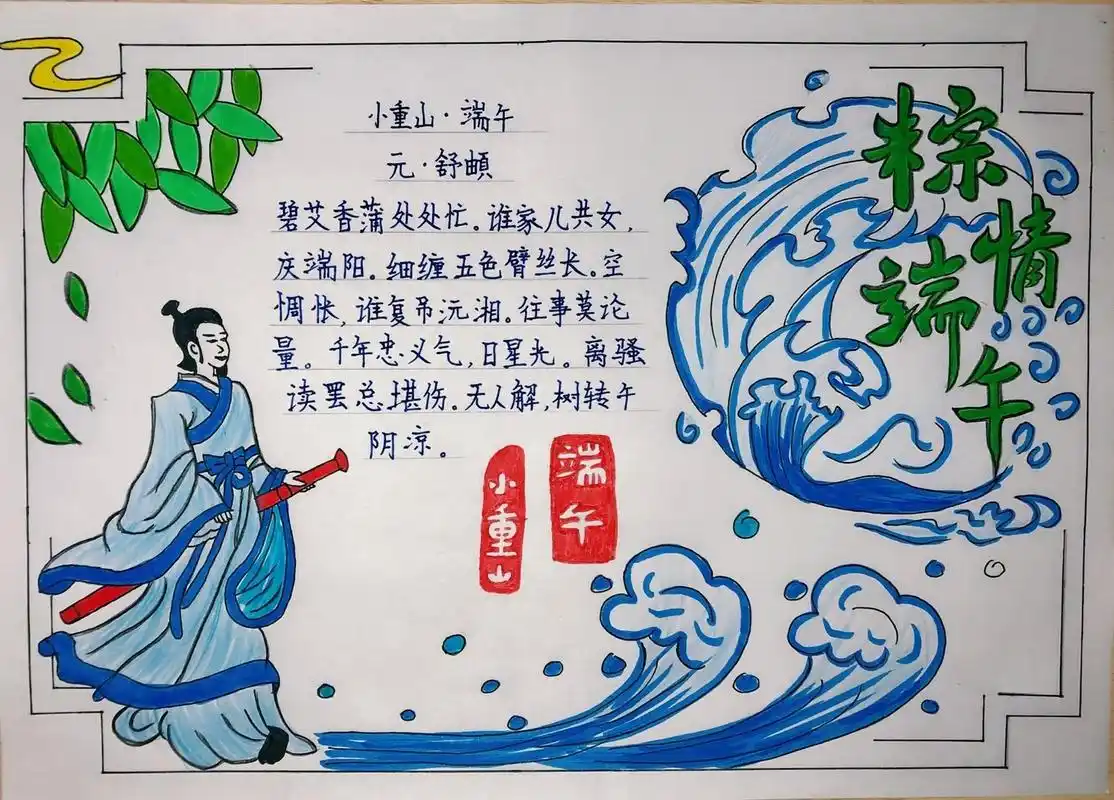 小重山·端午
元·舒頔
碧艾香蒲处处忙。谁家儿共女，
庆端阳。细缠五色臂丝长。空
惆怅，谁复吊沅湘。往事莫论
量。千年忠义气，日星光。离骚
读罢总堪伤。无人解，树转午
阴凉。
小重山
端午
粽情
端午